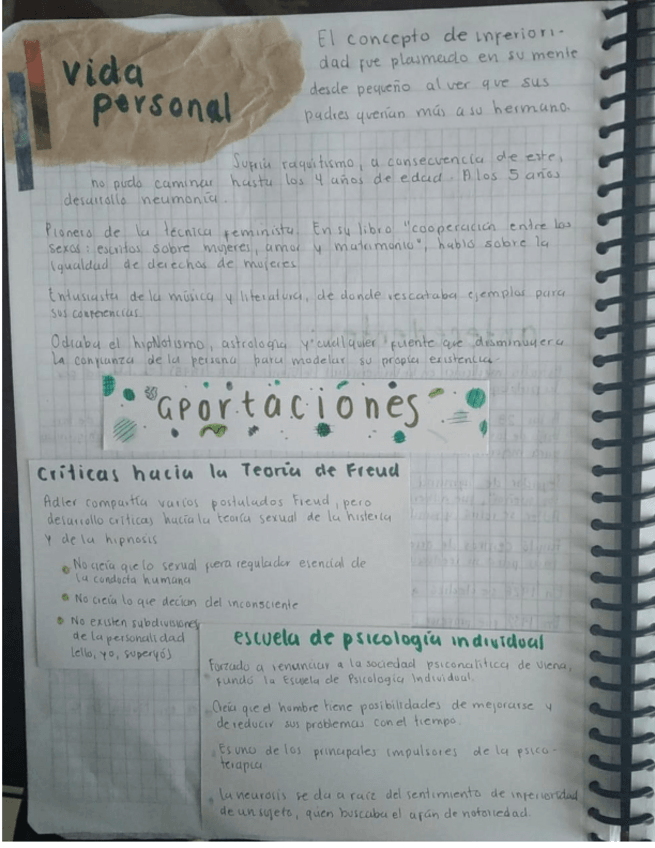 vida
personal
El concepto de inferiori-
dad fue plasmado en su mente
desde pequeño al ver que sus
padres querían más a su hermano.
Sufría raquitismo, a consecuencia de este,
no pudo caminar hasta los 4 años de edad. A los 5 años
desarrollo neumonía.
Pionero de la técnica feminista. En su libro "cooperación entre los
sexos: escritos sobre mujeres, amor y matrimonio", habló sobre la
igualdad de derechos de mujeres
Entusiasta de la música y literatura, de donde rescataba ejemplos para
sus conferencias.
Odiaba el hipnotismo, astrología y cualquier fuente que disminuyera
la confianza de la persona para modelar su propia existencia.
aportaciones
Críticas hacia la Teoría de Freud
Adler compartía varios postulados Freud, pero
desarrollo críticas hacia la teoría sexual de la histeria
y de la hipnosis
No creía que lo sexual fuera regulador esencial de
la conducta humana
No creía lo que decían del inconsciente
No existen subdivisiones
de la personalidad
(ello, yo, superyó)
escuela de psicología individual
Forzado a renunciar a la sociedad psiconalítica de Viena,
fundó la Escuela de Psicología Individual.
Creía que el hombre tiene posibilidades de mejorarse y
de reducir sus problemas con el tiempo.
Es uno de los principales impulsores de la psico-
terapia
La neurosis se da a raíz del sentimiento de inferioridad
de un sujeto, quien buscaba el afán de notoriedad.